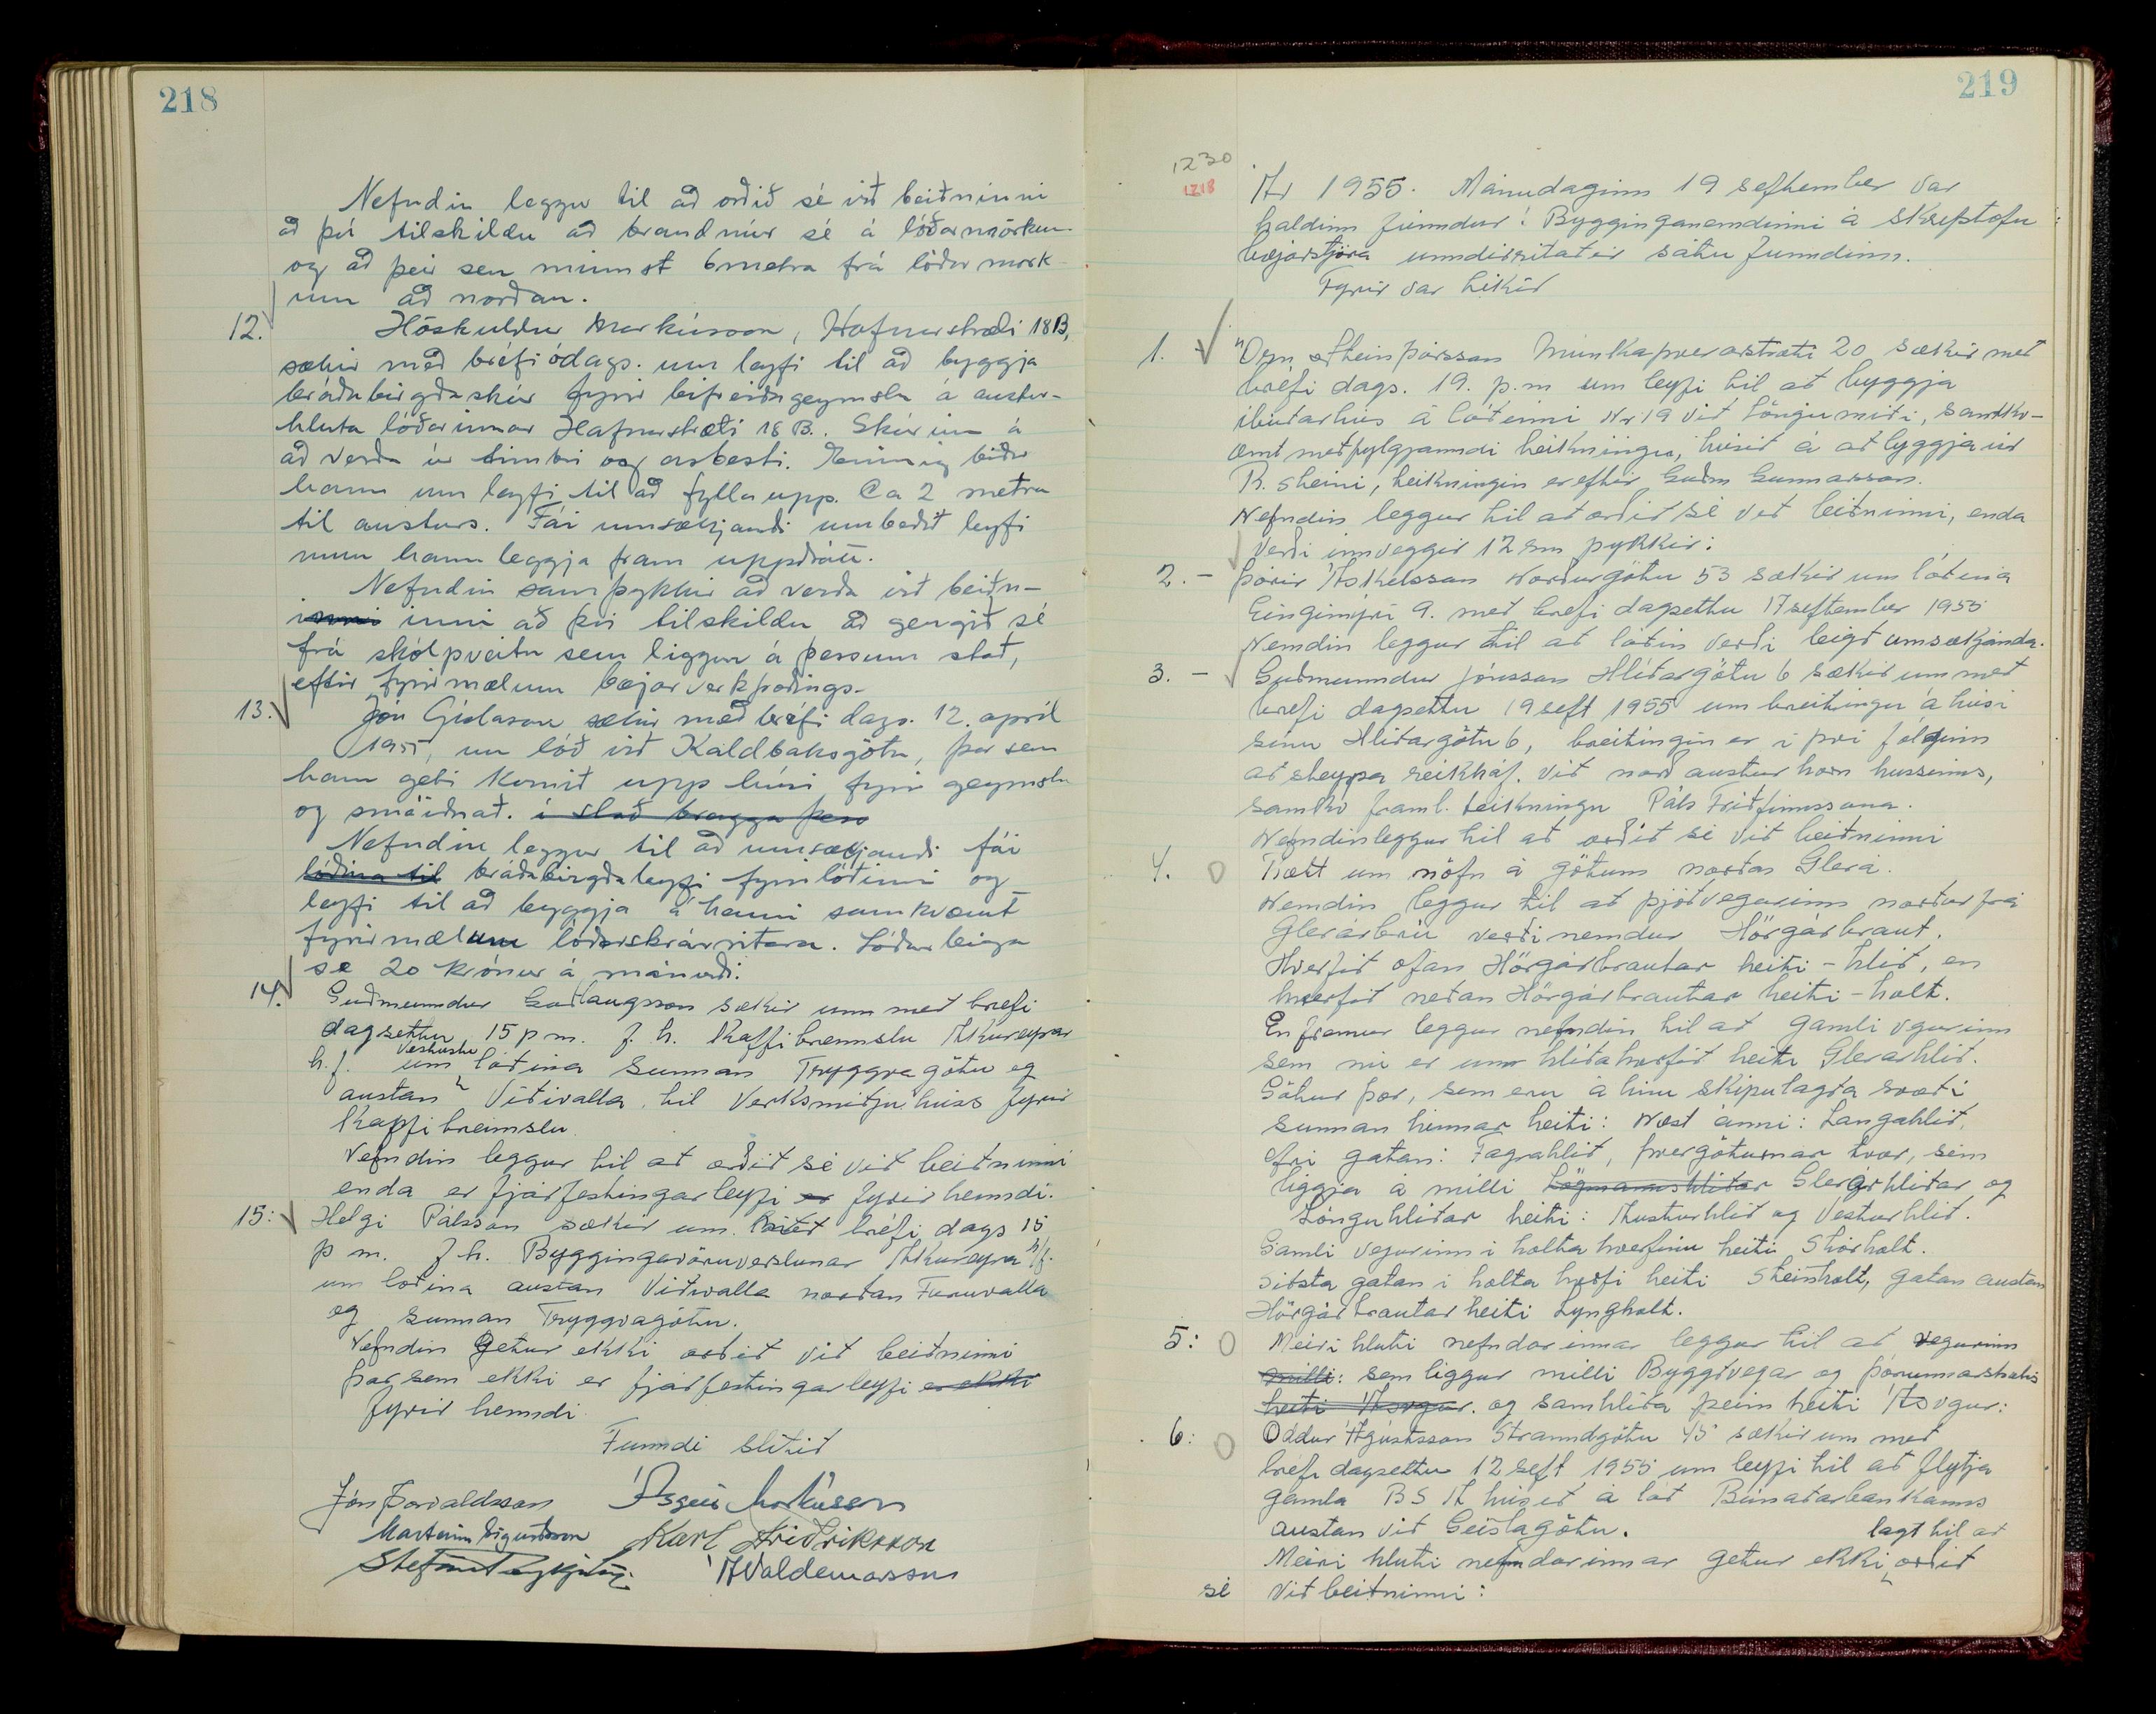 218
Nefndin leggur til að orðið sé við beiðninni
að því tilskildu að brandmúr sé á lóðarmörkum
og að þeir séu minnst 6 metra frá lóðarmörk-
um að norðan.
12. Höskuldur Markússon, Hafnarstræti 18 B,
sækir með bréfi ódags. um leyfi til að byggja
bráðabirgðaskúr fyrir bifreiðageymslu á austur-
hluta lóðarinnar Hafnarstræti 18 B. Skúrinn á
að verða úr timbri og asbesti. Einnig biður
hann um leyfi til að fylla upp. Ca 2 metra
til austurs. Fái umsækjandi umbeðið leyfi
mun hann leggja fram uppdrátt.
Nefndin samþykkir að verða við beiðn-
inni að því tilskildu að gengið sé
frá skólpveitu sem liggur á þessum stað,
eftir fyrirmælum bæjarverkfræðings.
13. Jón Gíslason sækir með bréfi dags. 12. apríl
1955, um lóð við Kaldbaksgötu, þar sem
hann geti komið upp húsi fyrir geymslu
og smáiðnað. í stað bragga þess
Nefndin leggur til að umsækjandi fái
lóðina til bráðabirgðaleyfi fyrir lóðinni og
leyfi til að byggja á henni samkvæmt
fyrirmælum lóðarskrárritara. Lóðarleiga
sé 20 krónur á mánuði.
14. Guðmundur Guðlaugsson sækir um með brefi
dagsettu 15 þ m. f. h. Kaffibrennslu Akureyrar
h.f. um vestustu lóðina sunnan Tryggvagötu og
austan Víðivalla til Verksmiðjuhúss fyrir
Kaffibrennslu
Nefndin leggur til at orðit sé vit beitninni
enda er fjárfestingarleyfi er fyrir henndi.
15: Helgi Pálsson sækir um með bréfi dags 15
þ m. f h. Byggingavöruverslunar Akureyra h/f.
um lotina austan Vitivalla nortan Furuvalla
og sunnan Tryggvagötu.
Nefndin getur ekki ortit vit beitninni
þar sem ekki er fjárfestingarleyfi er ekki
fyrir henndi
Funndi slitit
Jón Þorvaldsson Ásgeir Markússon
Marteinn Sigurðsson Karl Friðriksson
Stefán Reykjalín A Valdemarsson
219
1230
1218
Ár 1955. Mánudaginn 19 sefhember var
haldinn funndur í Bygginganemdinni á skrifstofu
bæjarstjóra unndirritatir sátu funndinn.
Fyrir var tekit
1. Örn Steinþórsson Munkaþverárstræti 20 sækir met
bréfi dags. 19. þ.m um leyfi til at byggja
íbutarhús á lótinni Nr 19 vit Löngumýri, samkv-
æmt metfylgjanndi teikningu, húsit á at byggja úr
R. steini, teikningin er eftir Guðm Gunnarsson.
Nefndin leggur til at orðit sé vit beitninni, enda
verði innveggir 12 sm þykkir:
2. - Þórir Áskelsson Norðurgötu 53 sækir um lótina
Eingimýri 9. met brefi dagsettu 17 september 1955
Nemdin leggur til at lótin verði leigt umsækjanda.
3. - Guðmunndur Jónsson Hlítargötu 6 sækir um met
brefi dagsettu 19 seft 1955 um breitingu á húsi
sínu Hlitargötu 6, breitingin er í þvi fólginn
at steypa reikháf. vit norðausturhorn hussinns,
samkv framl. teikningu Páls Fritfinnssona.
Nefndin leggur til at orðit sé vit beitninni
4. Rætt um nöfn á götum nortan Glerá.
Nemdin leggur til at þjótvegurinn nortur frá
Glerárbrú verti nemdur Hörgárbraut.
Hverfit ofan Hörgárbrautar heiti - hlit, en
hverfit netan Hörgárbrautar heiti - holt.
En fremur leggur nefndin til at gamli vgurinn
sem nú er um hlitahverfit heiti Glerarhlit.
Götur þær, sem eru á hinu skipulagta svæti
sunnan hennar heiti: Næst ánni: Langahlit,
efri gatan: Fagrahlit, þvergöturnar tvær, sem
liggja á milli Lögmannshlitar Glerárhlitar og
Lönguhlitar heiti: Austurhlit og Vesturhlit.
Gamli vegurinn i holta hverfinu heiti Stórholt.
sitsta gatan i holta hvrfi heiti Steinholt, gatan austan
Hörgárbrautar heiti Lyngholt.
5: Meiri hluti nefndarinnar leggur til at vegurinn
milli: sem liggur milli Byggtvegar og Þórunnarstrætis
heiti Ásvgur. og samhlíta þeim heiti Ásvgur:
6: Oddur Ágústsson Stranndgötu 45 sækir um met
brefi dagsettu 12 seft 1955 um leyfi til at flytja
gamla B S A húset á lót Búnatarbankanns
austan vit Geislagötu. lagt til at
Meiri hluti nefndarinnar getur ekki orðit
sé vit beitninni: